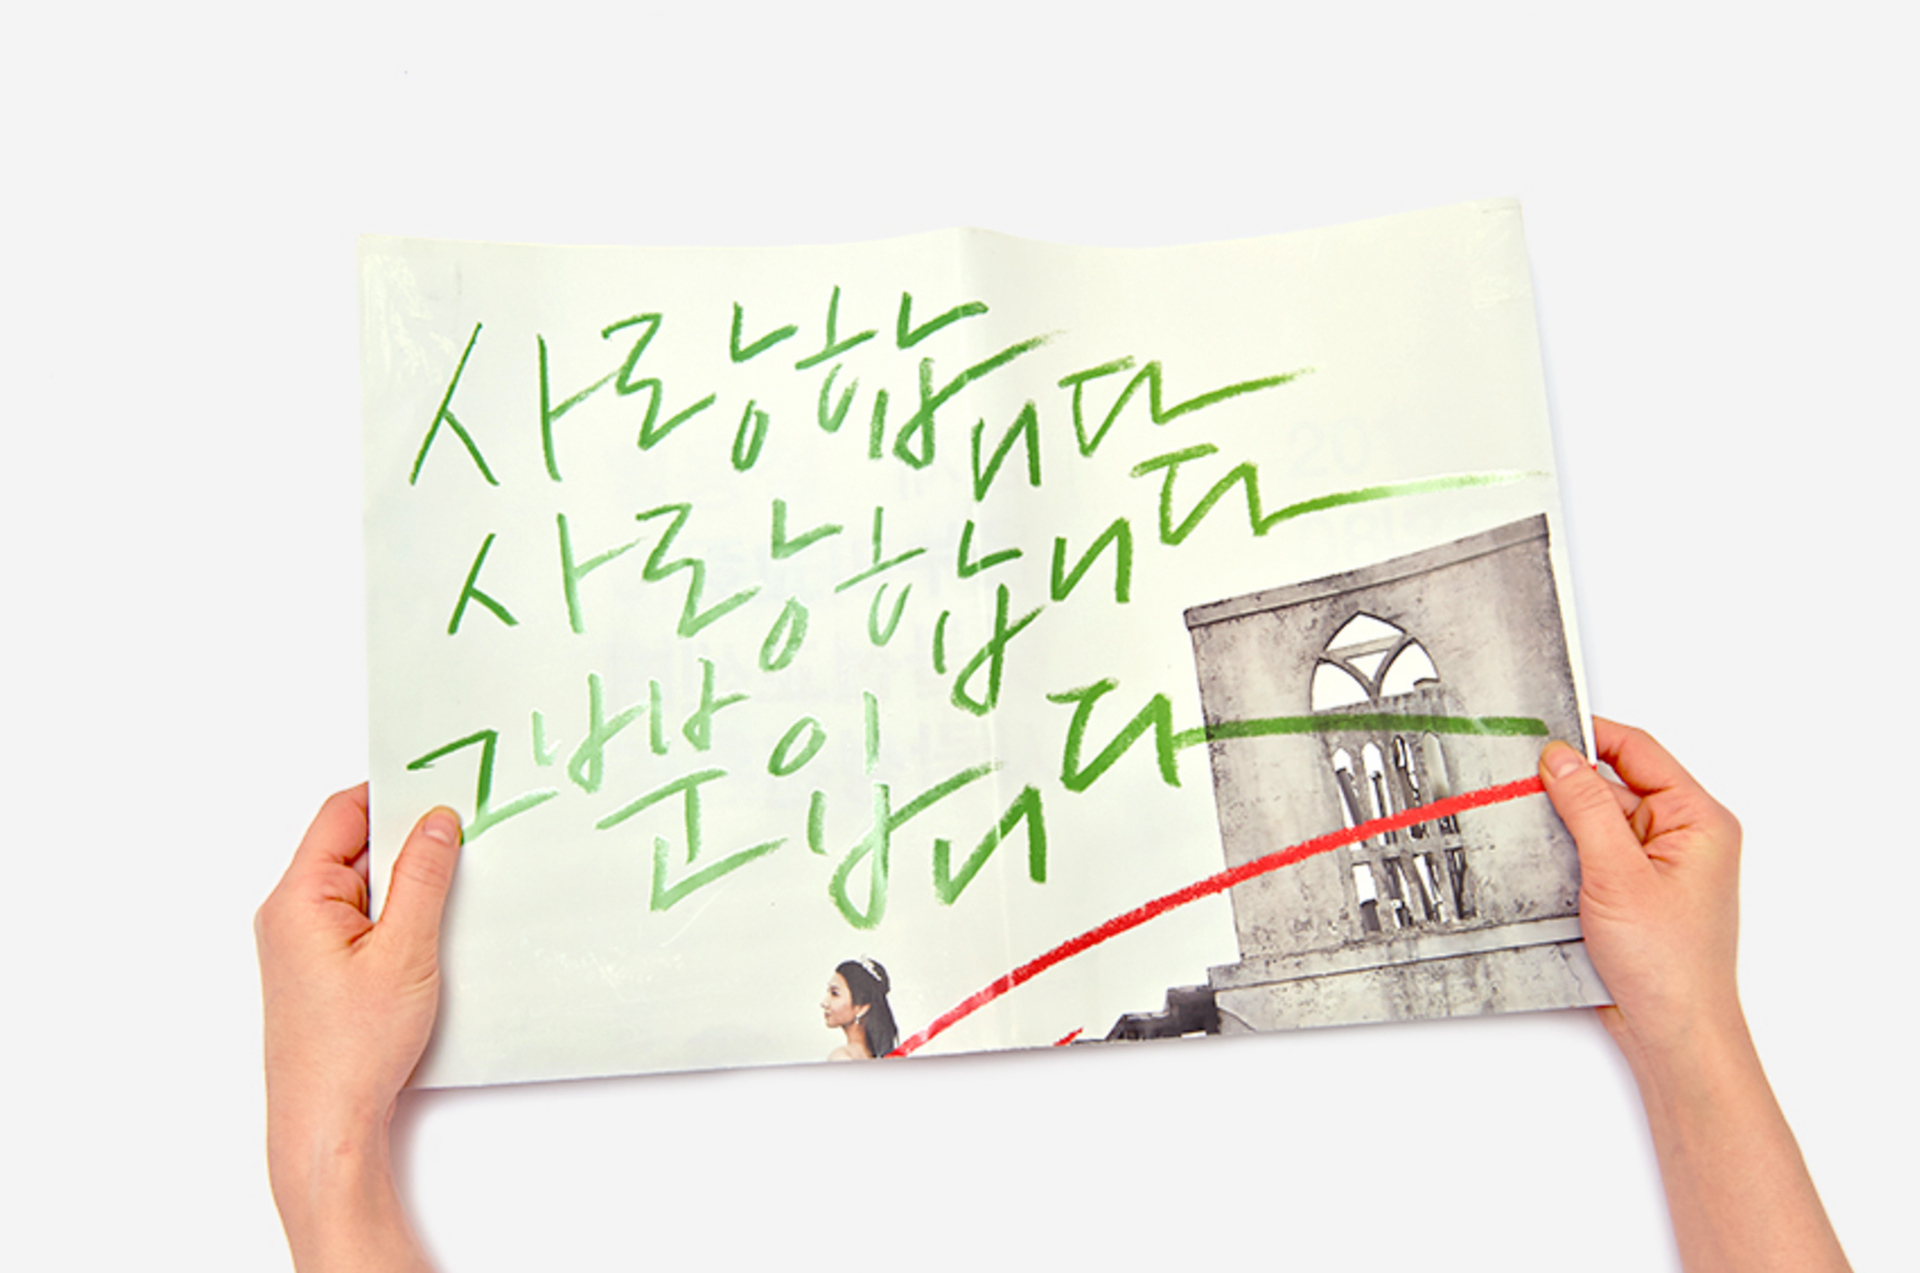 사랑합니다
사랑합니다
그뿐입니다